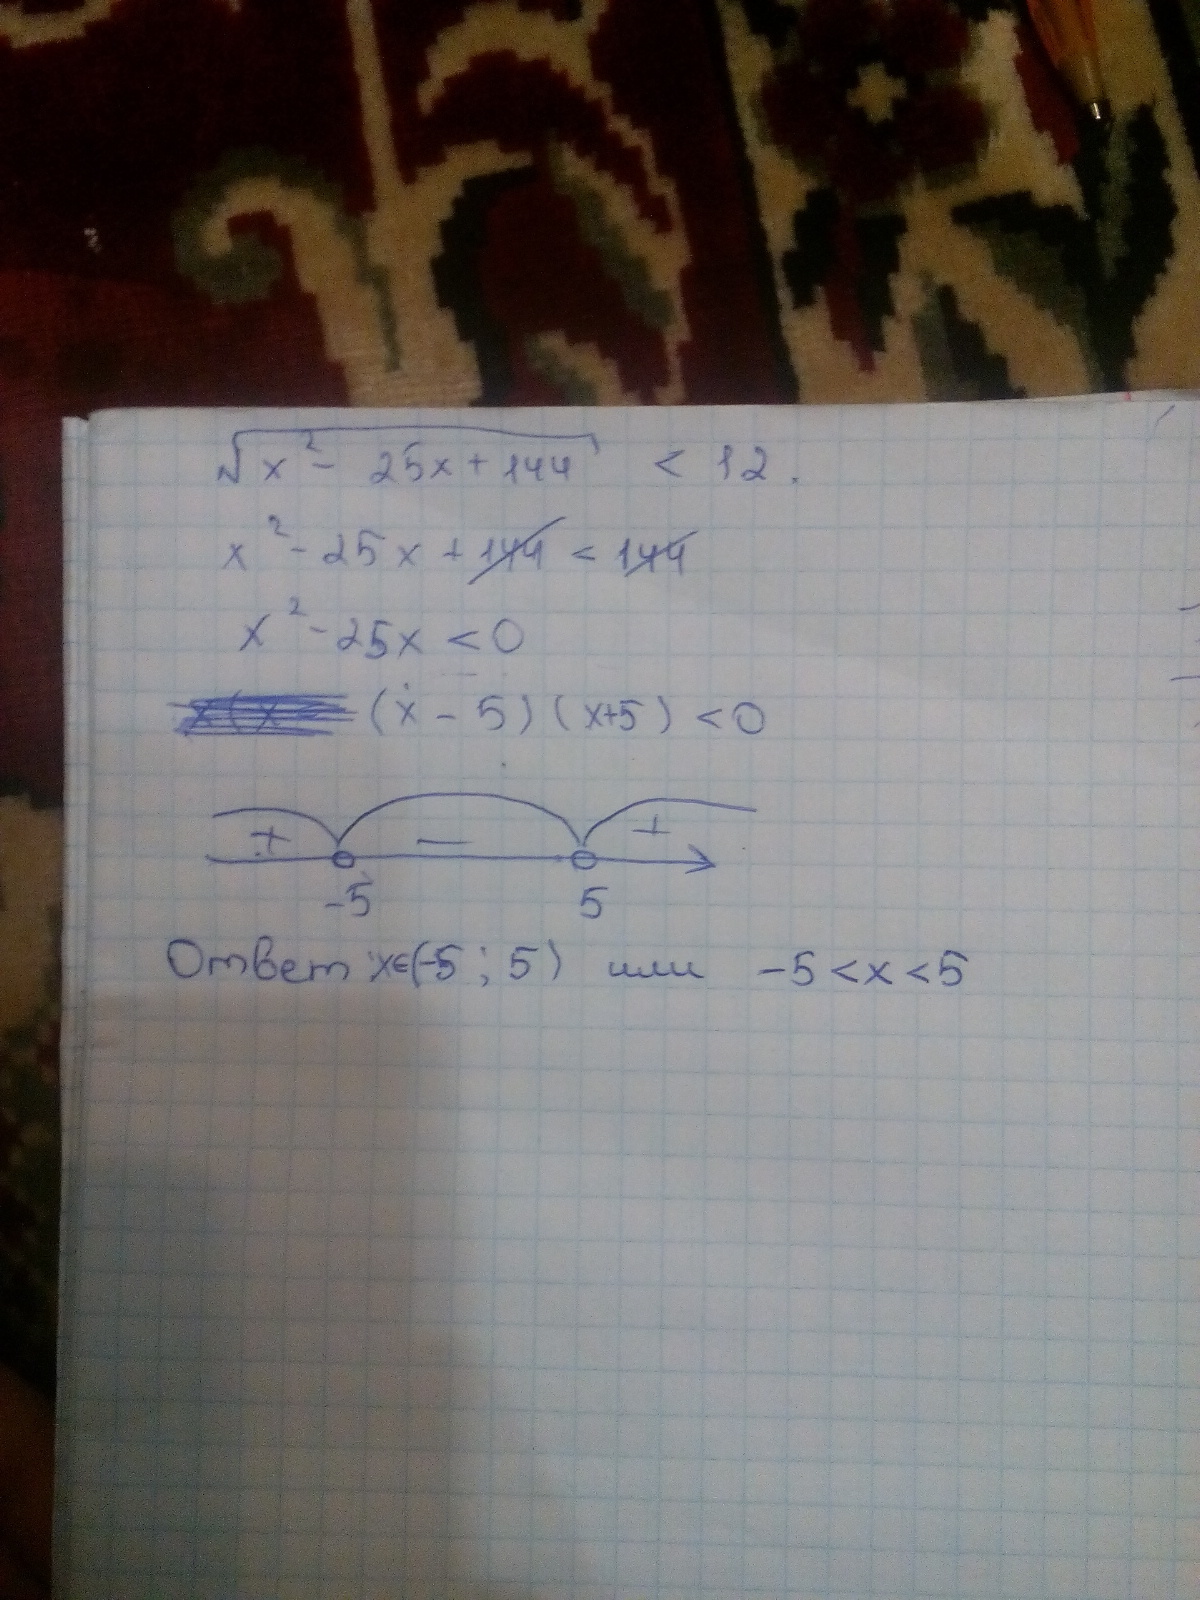 √x² - 25x + 144 < 12.
x² - 25x + 144 < 144
x² - 25x < 0
(x - 5)(x+5) < 0
+ − +
-5 5
Ответ x∈(-5; 5) или -5 < x < 5